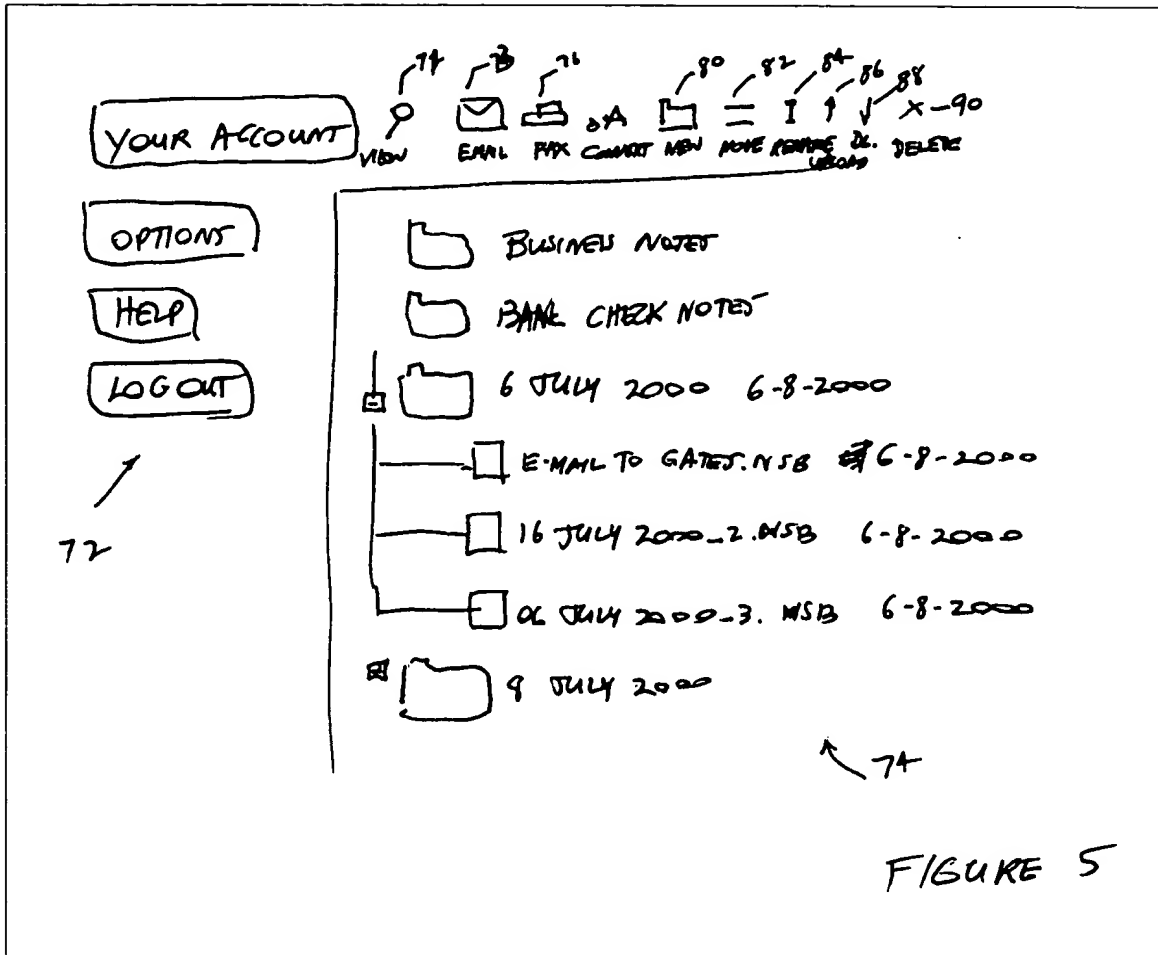 80 82 84 86 88
YOUR ACCOUNT
X-90
VIEW EMAIL FAX CONVERT NEW MOVE RENAME UPLOAD DELETE
OPTIONS
HELP
LOGOUT
72
BUSINESS NOTES
BANK CHECK NOTES
6 JULY 2000 6-8-2000
E-MAIL TO GATES.NSB 6-8-2000
16 JULY 2000_2.NSB 6-8-2000
06 JULY 2000_3.NSB 6-8-2000
9 JULY 2000
74
FIGURE 5